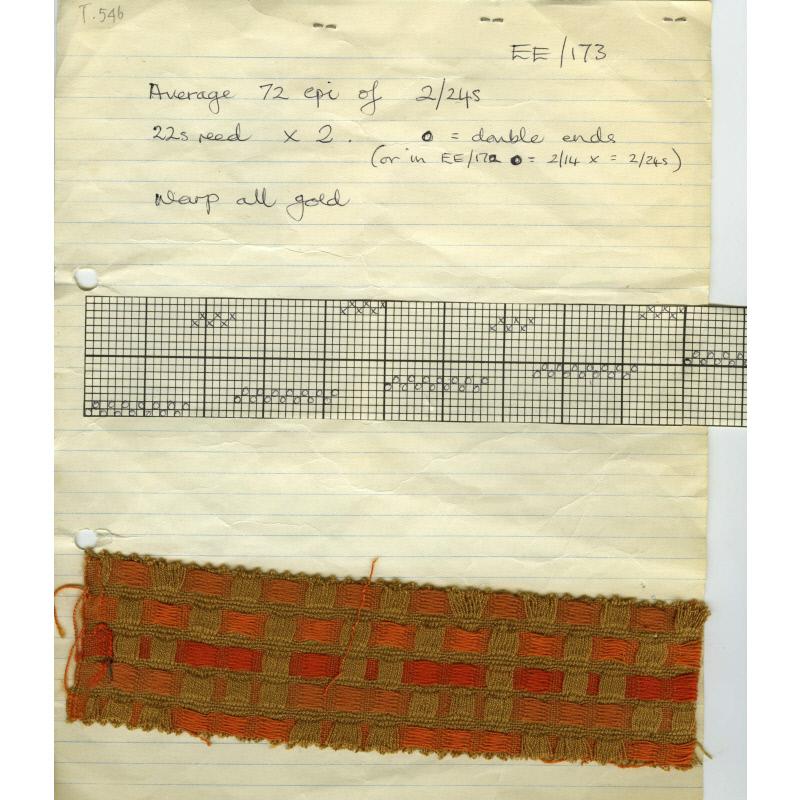 T.546
EE/173
Average 72 epi of 2/24s
22s reed x 2. o = double ends
(or in EE/172 o = 2/14 x = 2/24s)
Warp all gold